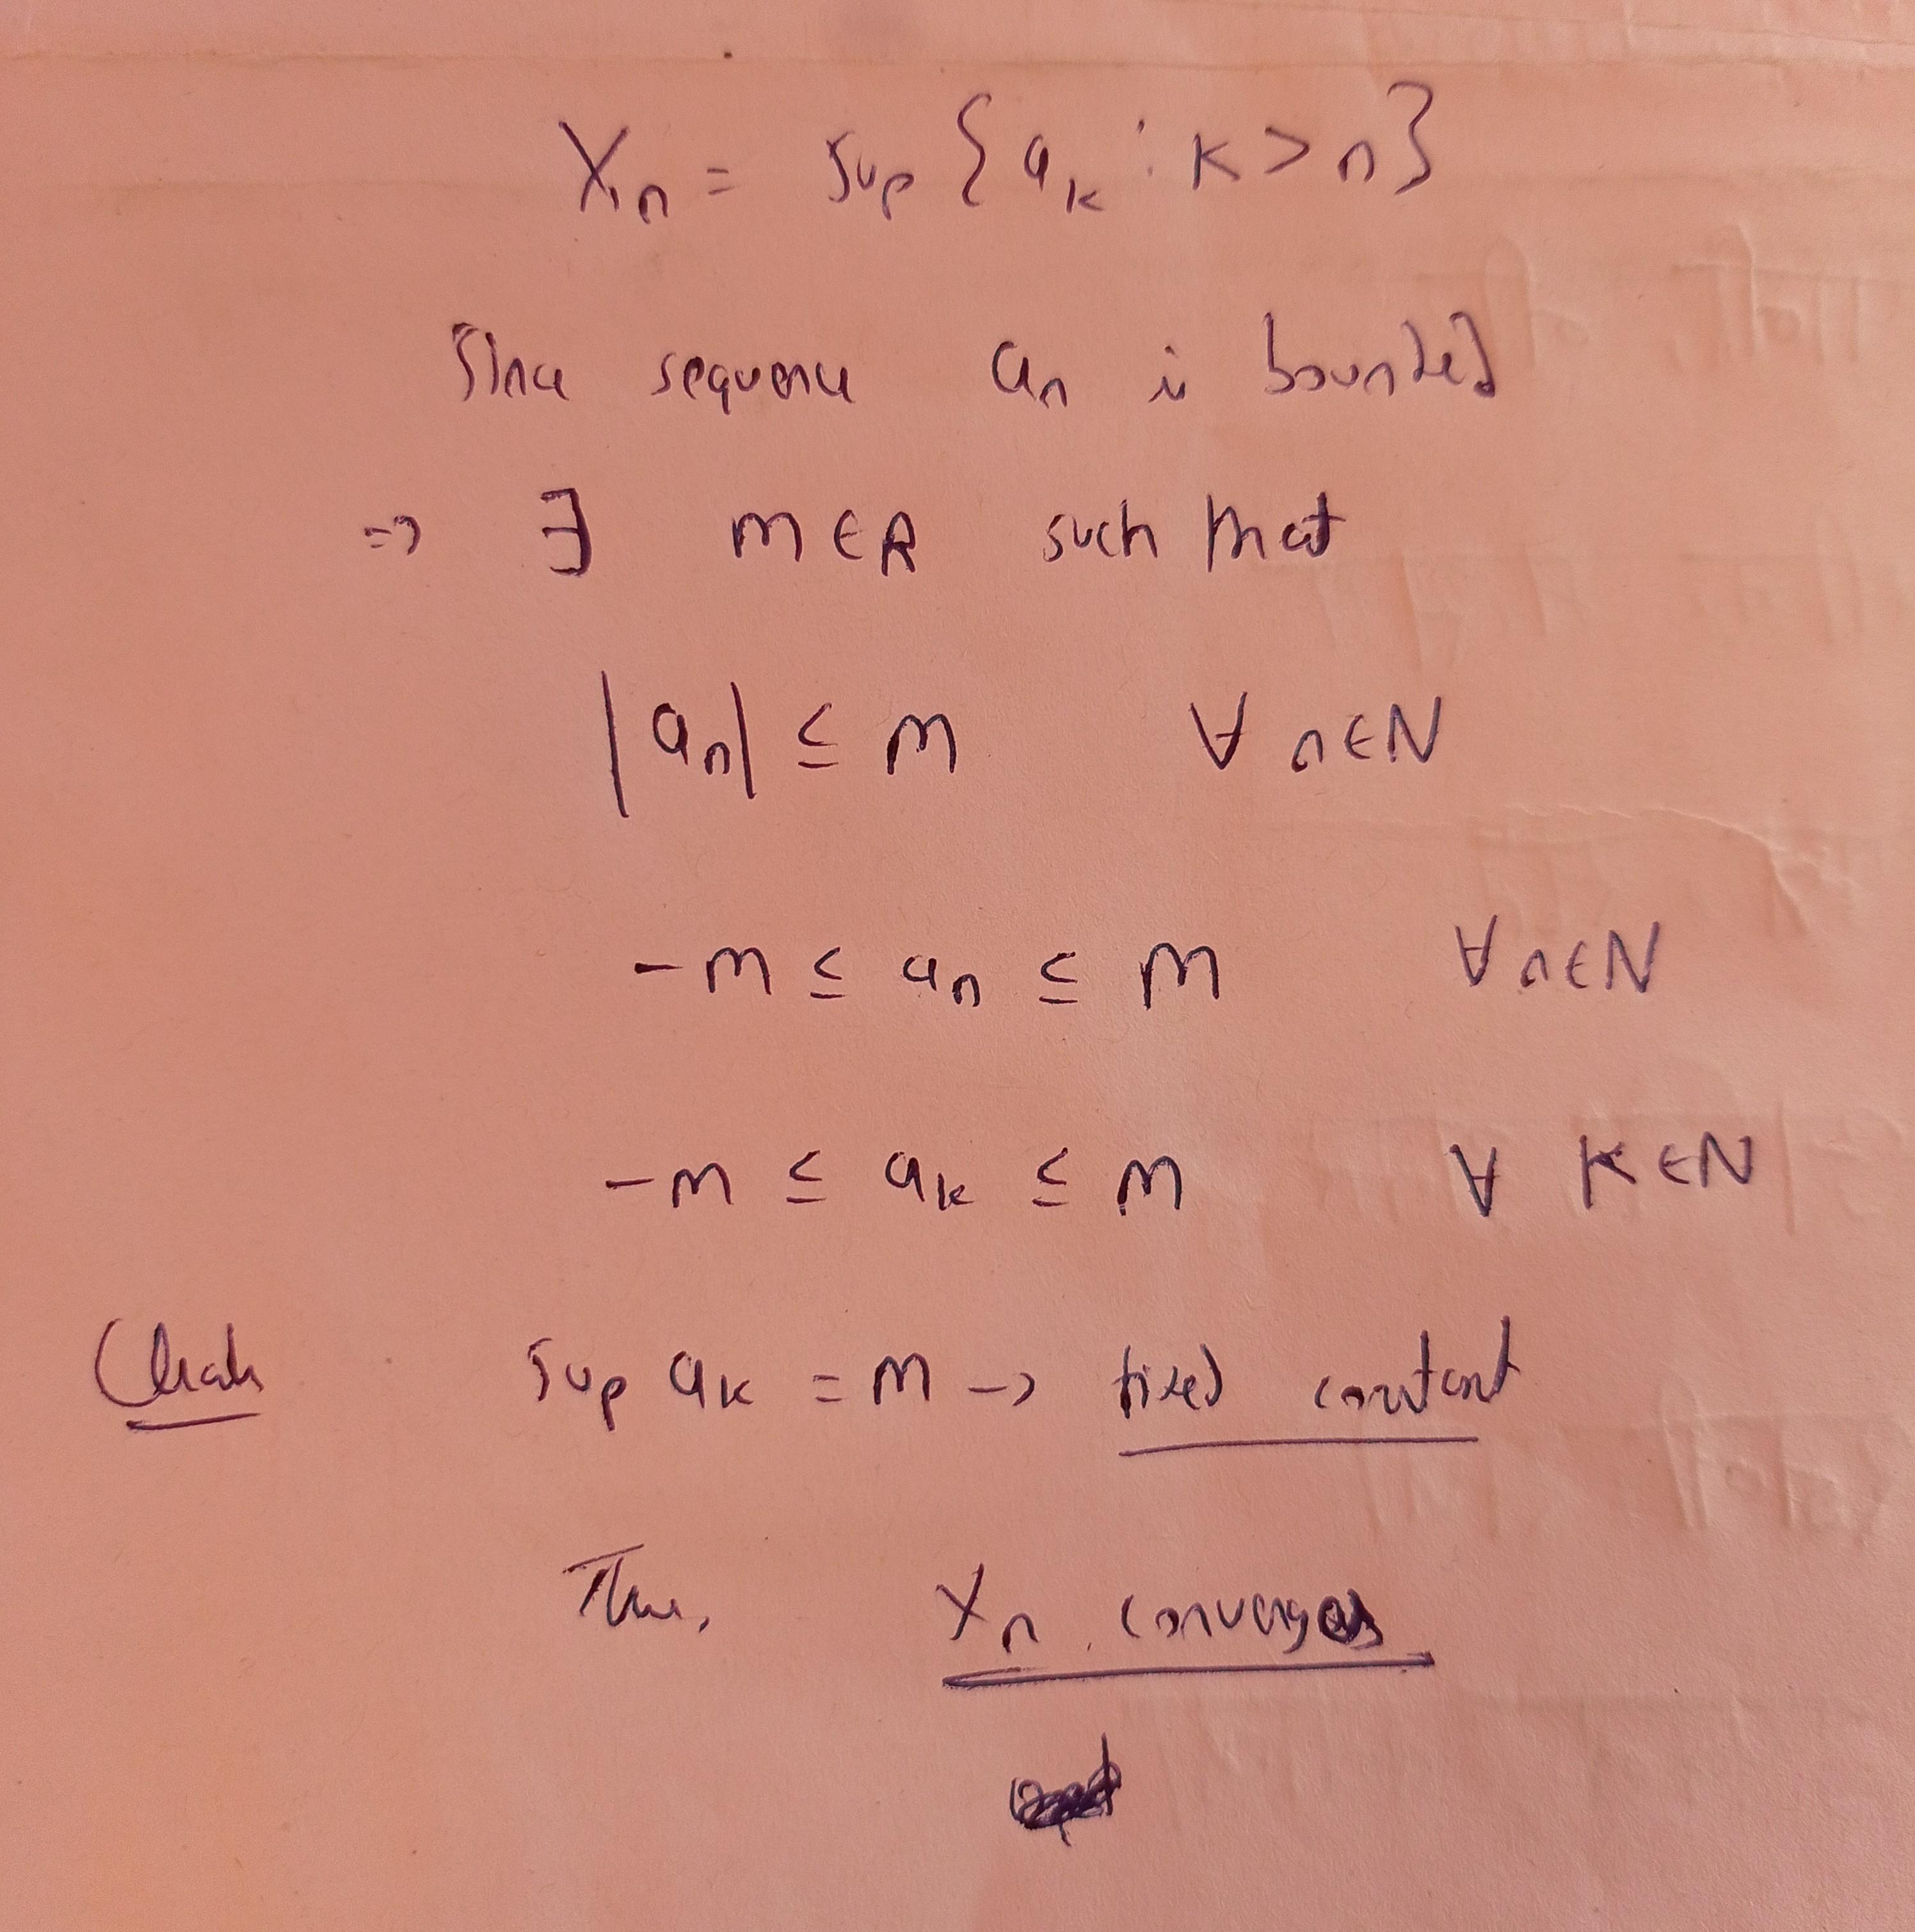 Xn = sup { ak : k > n }
Since sequence an is bounded
=> ∃ m ∈ R such that
|an| ≤ m ∀ n ∈ N
-m ≤ an ≤ m ∀ n ∈ N
-m ≤ ak ≤ m ∀ k ∈ N
sup ak = m -> fixed constant
Thus, Xn converges